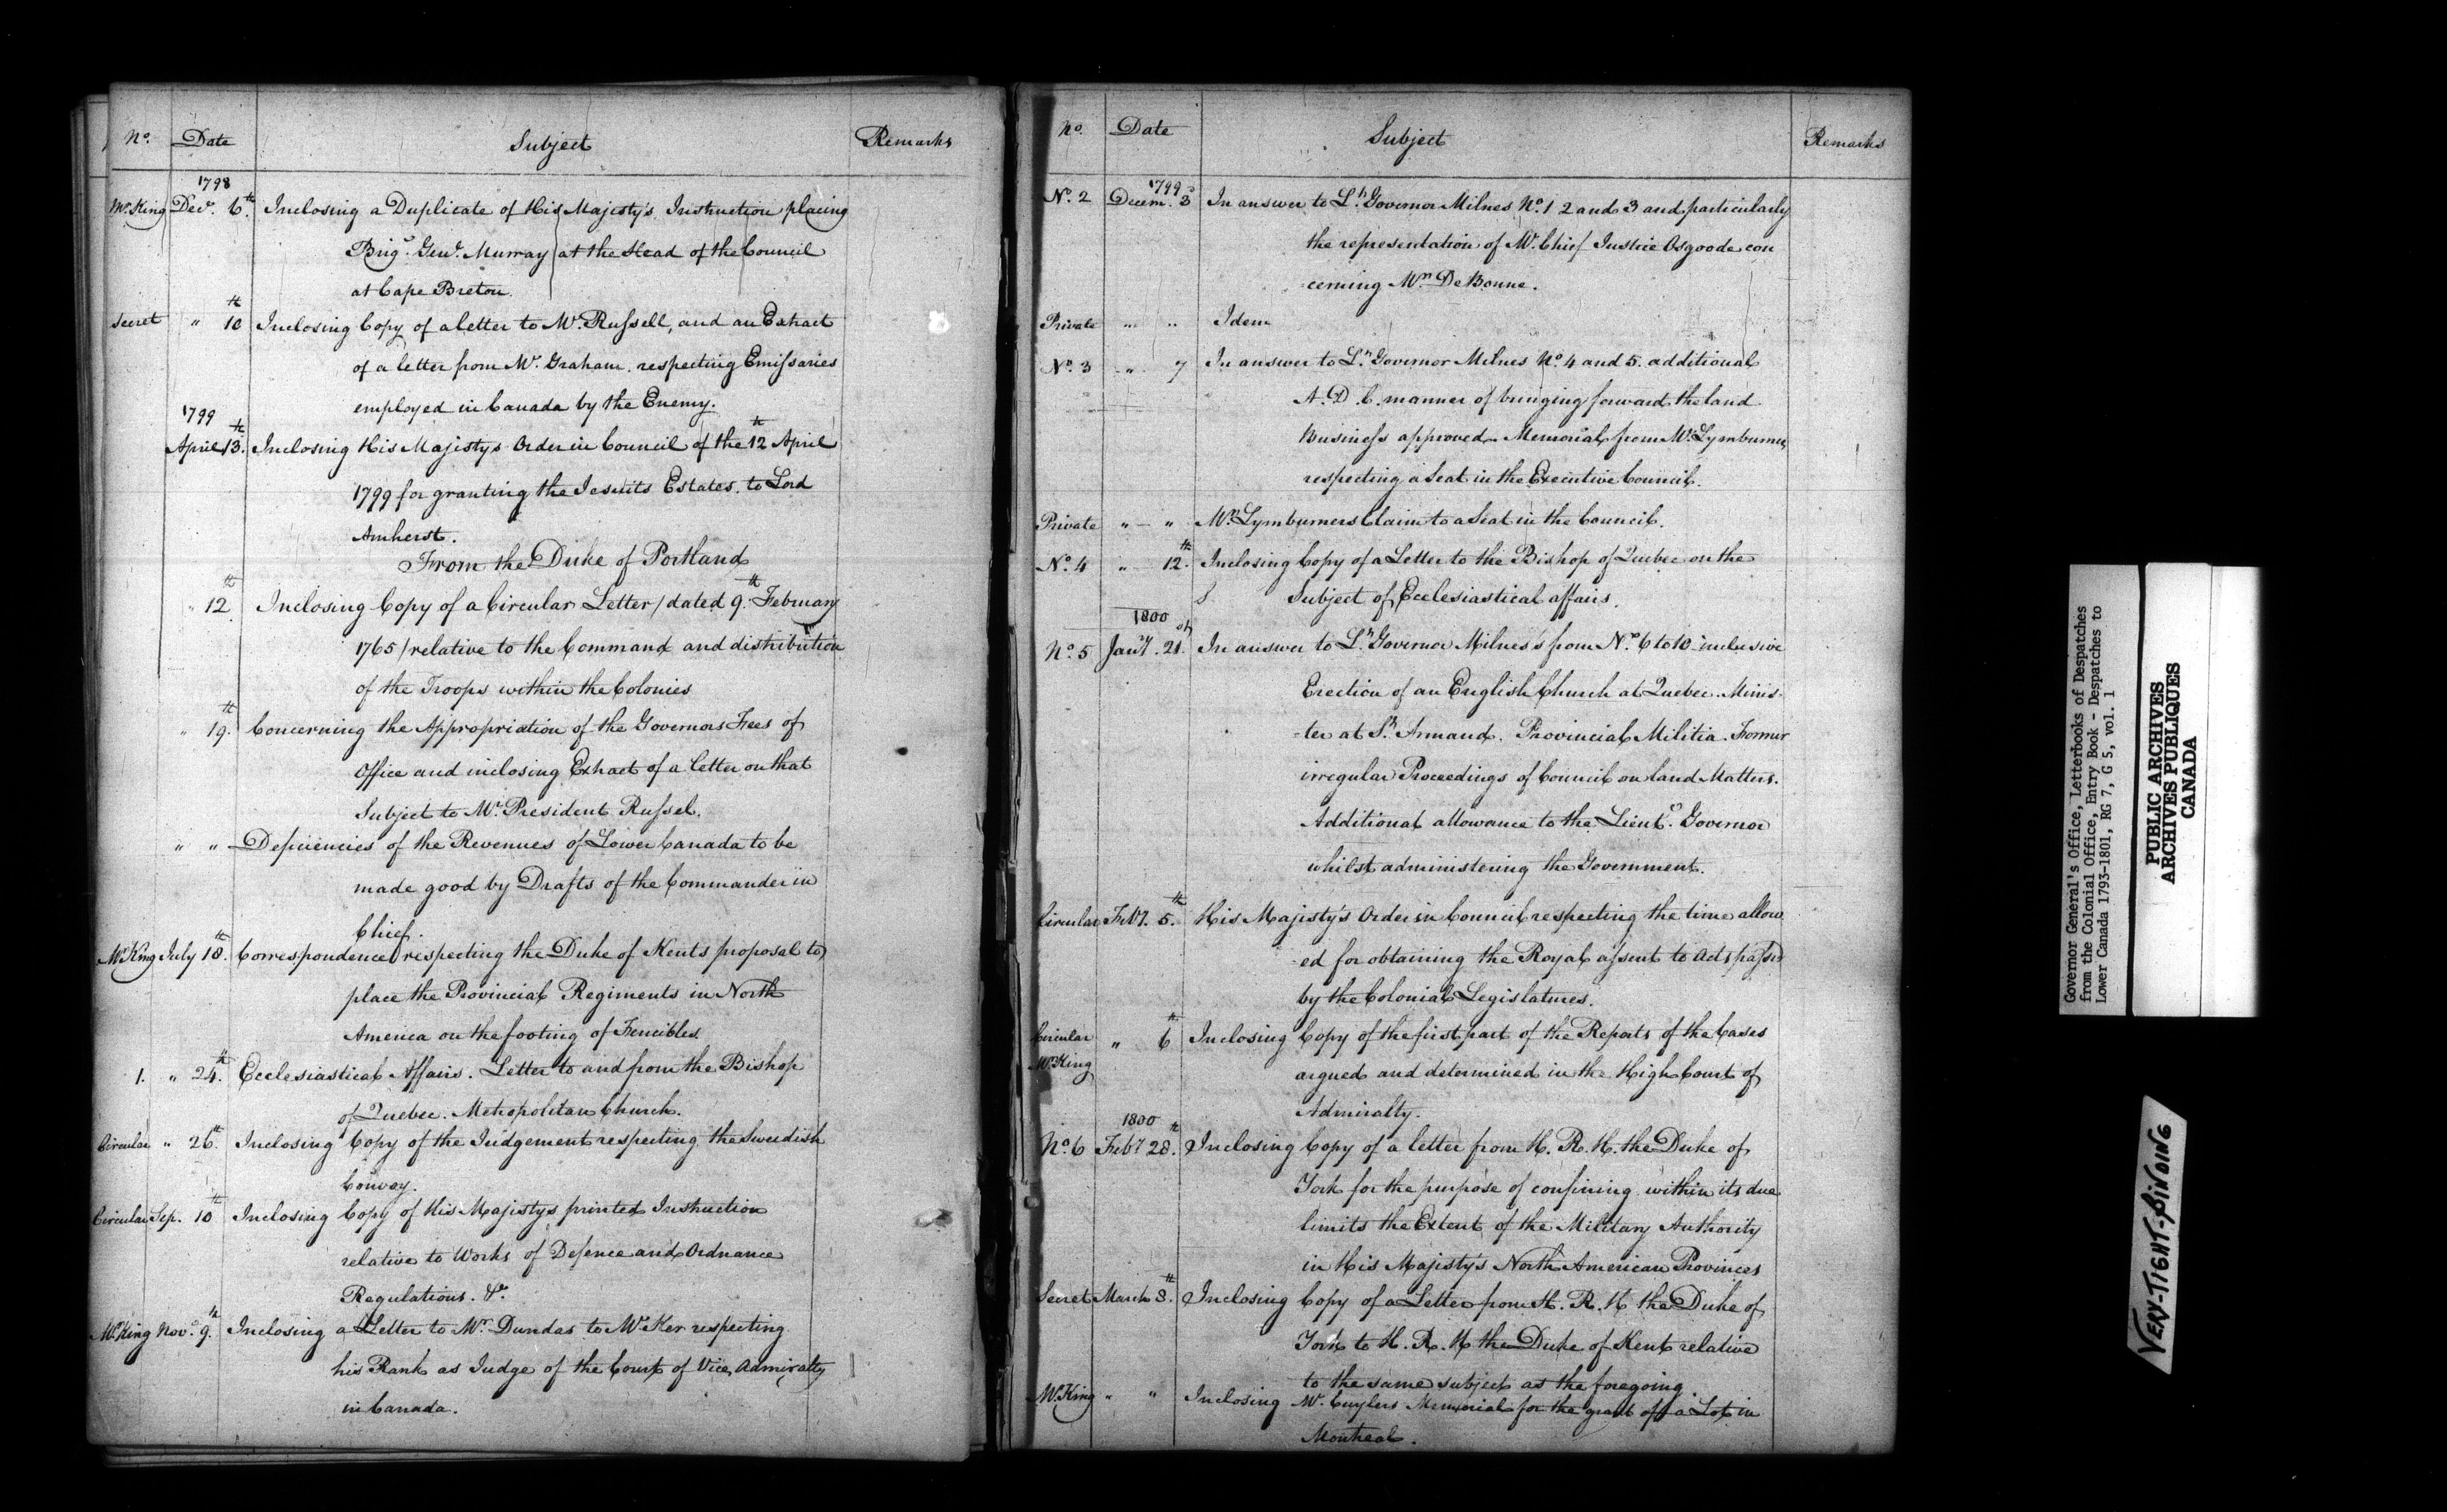 No. Date Subject Remarks
1798
Mr. King Decr. 6th. Inclosing a Duplicate of His Majesty's Instruction placing
Brigr. Genl. Murray at the Head of the Council
at Cape Breton.
Secret " 10th Inclosing Copy of a letter to Mr. Russell, and an Extract
of a letter from Mr. Graham. respecting Emissaries
employed in Canada by the Enemy.
1799
April 13th. Inclosing His Majestys Order in Council of the 12th April
1799 for granting the Jesuits Estates. to Lord
Amherst.
From the Duke of Portland
" 12th. Inclosing Copy of a Circular Letter / dated 9th. February
1765 / relative to the Command and distribution
of the Troops within the Colonies
" 19th. Concerning the Appropriation of the Governors Fees of
Office and inclosing Extract of a letter on that
Subject to Mr. President Russel.
" " Deficiencies of the Revenues of Lower Canada to be
made good by Drafts of the Commander in
Chief.
Mr. King July 18th. Correspondence respecting the Duke of Kents proposal to
place the Provincial Regiments in North
America on the footing of Fencibles.
1. " 24th. Ecclesiastical Affairs. Letter to and from the Bishop
of Quebec. Metropolitan Church.
Circular " 26th. Inclosing Copy of the Judgement respecting the Swedish
Convoy.
Circular Sep. 10th Inclosing Copy of His Majestys printed Instruction
relative to Works of Defence and Ordnance
Regulations. &c.
Mr. King Novr. 9th. Inclosing a Letter to Mr. Dundas to Mr. Ker respecting
his Rank as Judge of the Court of Vice Admiralty
in Canada.
No. Date Subject Remarks
1799
No. 2 Decem. 3d In answer to Lt. Governor Milnes No. 1 2 and 3 and particularly
the representation of Mr. Chief Justice Osgoode con
cerning Mr. De Bonne.
Private " " Idem
No. 3 " 7 In answer to Lt. Governor Milnes No. 4 and 5. additional
A. D. C. manner of bringing forward the land
Business approved. Memorial from Mr. Lymburner
respecting a Seat in the Executive Council.
Private " — " Mr. Lymburners Claim to a Seat in the Council.
No. 4 " 12th. Inclosing Copy of a Letter to the Bishop of Quebec on the
Subject of Ecclesiastical affairs.
1800
No. 5 Jany. 21st. In answer to Lt. Governor Milnes's from No. 6 to 10 inclusive
Erection of an English Church at Quebec. Minis-
-ter at St. Armand. Provincial Militia. Former
irregular Proceedings of Council on land Matters.
Additional allowance to the Lieut. Governor
whilst administering the Government.
Circular Feby. 5th. His Majesty's Order in Council respecting the time allow
ed for obtaining the Royal assent to Acts passed
by the Colonial Legislatures.
Circular " 6th Inclosing Copy of the first part of the Reports of the Cases
Mr. King argued and determined in the High Court of
Admiralty.
1800
No. 6 Feby 28th. Inclosing Copy of a letter from H. R. H. the Duke of
York for the purpose of confining within its due
limits the Extent of the Military Authority
in His Majesty's North American Provinces
Secret March 8th. Inclosing Copy of a Letter from H. R. H the Duke of
York to H. R. H the Duke of Kent relative
to the same subject as the foregoing.
Mr. King " " Inclosing Mr. Cuylers Memorial for the grant of a Lot in
Montreal.
Governor General's Office, Letterbooks of Despatches
from the Colonial Office, Entry Book - Despatches to
Lower Canada 1793-1801, RG 7, G 5, vol. 1
PUBLIC ARCHIVES
ARCHIVES PUBLIQUES
CANADA
VERY-TIGHT-BINDING